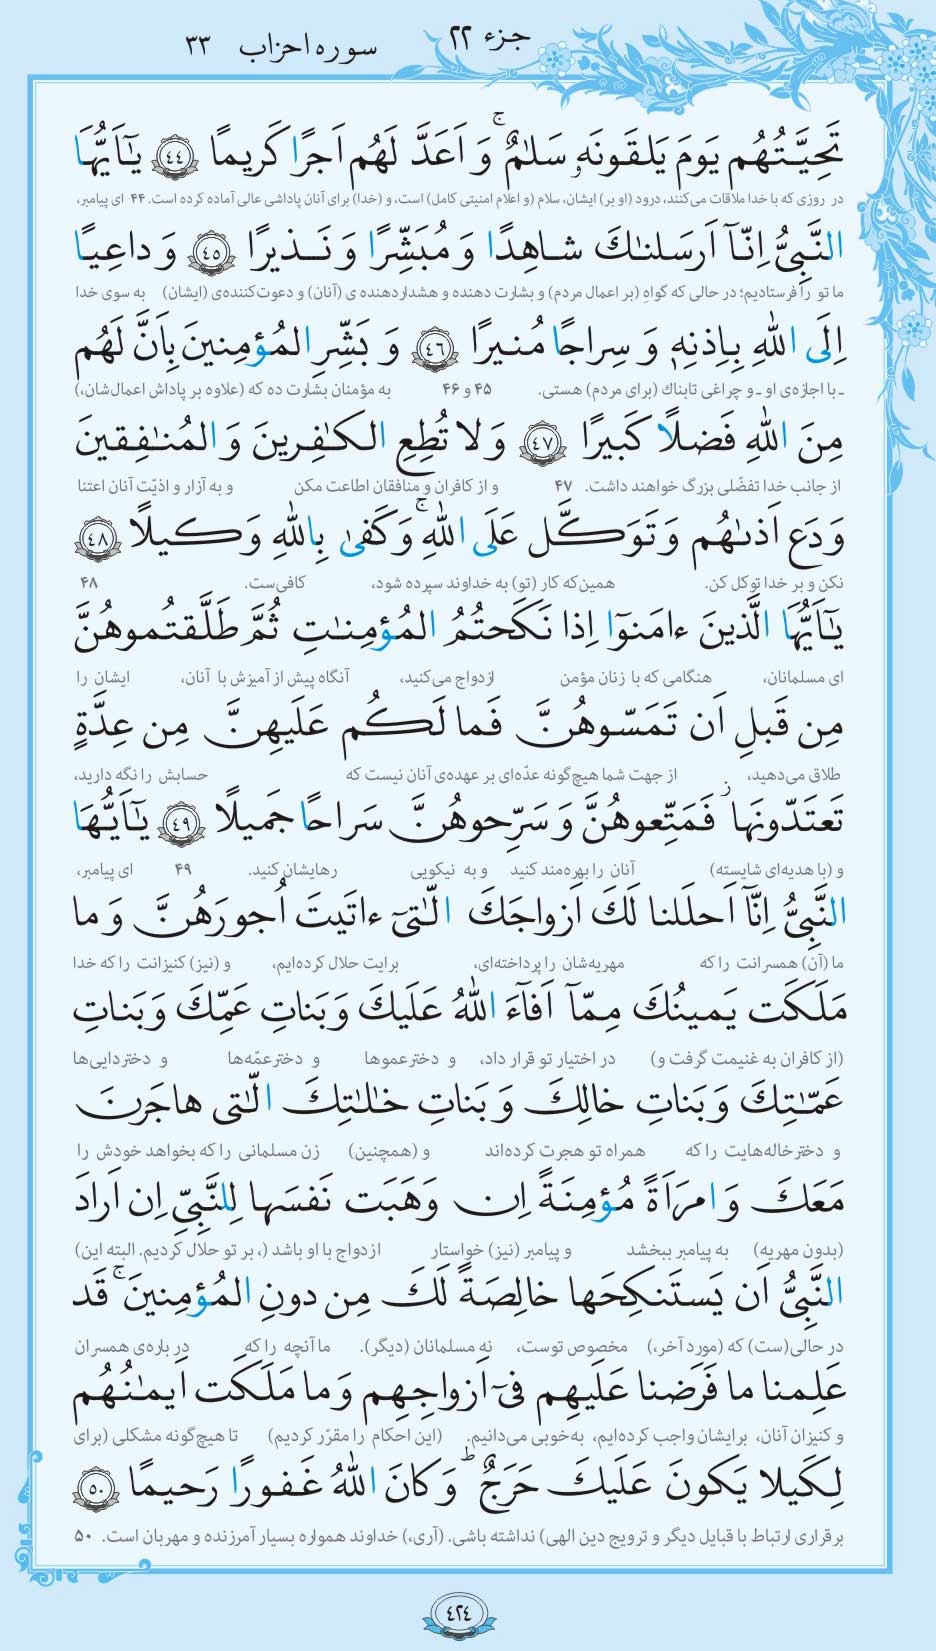 جزء ۲۲
سوره احزاب ۳۳
تَحِيَّتُهُم يَومَ يَلقَونَهٗ سَلٰمٌ ۚ وَ اَعَدَّ لَهُم اَجرًا كَريمًا ﴿٤٤﴾ يٰٓاَيُّهَا
در روزی که با خدا ملاقات می‌کنند، درود (او بر) ایشان، سلام (و اعلام امنیتی کامل) است، و (خدا) برای آنان پاداشی عالی آماده کرده است. ۴۴ ای پیامبر،
النَّبِيُّ اِنّآ اَرسَلنٰكَ شاهِدًا وَ مُبَشِّرًا وَ نَذيرًا ﴿٤٥﴾ وَ داعِيًا
ما تو را فرستادیم؛ در حالی که گواهِ (بر اعمال مردم) و بشارت دهنده و هشداردهنده ی (آنان) و دعوت‌کننده‌ی (ایشان) به سوی خدا
اِلَى اللهِ بِاِذنِهٖ وَ سِراجًا مُنيرًا ﴿٤٦﴾ وَ بَشِّرِ المُؤمِنينَ بِاَنَّ لَهُم
ـ با اجازه‌ی او ـ و چراغی تابناک (برای مردم) هستی. ۴۵ و ۴۶ به مؤمنان بشارت ده که (علاوه بر پاداش اعمال‌شان،)
مِنَ اللهِ فَضلًا كَبيرًا ﴿٤٧﴾ وَ لا تُطِعِ الكٰفِرينَ وَ المُنٰفِقينَ
از جانب خدا تفضّلی بزرگ خواهند داشت. ۴۷ و از کافران و منافقان اطاعت مکن و به آزار و اذیّت آنان اعتنا
وَ دَع اَذىٰهُم وَ تَوَكَّل عَلَى اللهِ ۚ وَ كَفىٰ بِاللهِ وَكيلًا ﴿٤٨﴾
نکن و بر خدا توکل کن. همین‌که کار (تو) به خداوند سپرده شود، کافی‌ست. ۴۸
يٰٓاَيُّهَا الَّذينَ ءامَنوٓا اِذا نَكَحتُمُ المُؤمِنٰتِ ثُمَّ طَلَّقتُموهُنَّ
ای مسلمانان، هنگامی که با زنان مؤمن ازدواج می‌کنید، آنگاه پیش از آمیزش با آنان، ایشان را
مِن قَبلِ اَن تَمَسّوهُنَّ فَما لَكُم عَلَيهِنَّ مِن عِدَّةٍ
طلاق می‌دهید، از جهت شما هیچ‌گونه عدّه‌ای بر عهده‌ی آنان نیست که حسابش را نگه دارید،
تَعتَدّونَها ۖ فَمَتِّعوهُنَّ وَ سَرِّحوهُنَّ سَراحًا جَميلًا ﴿٤٩﴾ يٰٓاَيُّهَا
و (با هدیه‌ای شایسته) آنان را بهره‌مند کنید و به نیکویی رهایشان کنید. ۴۹ ای پیامبر،
النَّبِيُّ اِنّآ اَحلَلنا لَكَ اَزواجَكَ الّٰتيٓ ءاتَيتَ اُجورَهُنَّ وَ ما
ما (آن) همسرانت را که مهریه‌شان را پرداخته‌ای، برایت حلال کرده‌ایم، و (نیز) کنیزانت را که خدا
مَلَكَت يَمينُكَ مِمّآ اَفآءَ اللهُ عَلَيكَ وَ بَناتِ عَمِّكَ وَ بَناتِ
(از کافران به غنیمت گرفت و) در اختیار تو قرار داد، و دخترعموها و دخترعمّه‌ها و دختردایی‌ها
عَمّٰتِكَ وَ بَناتِ خالِكَ وَ بَناتِ خٰلٰتِكَ الّٰتي هاجَرنَ
و دخترخاله‌هایت را که همراه تو هجرت کرده‌اند و (همچنین) زن مسلمانی را که بخواهد خودش را
مَعَكَ وَ امرَاَةً مُؤمِنَةً اِن وَهَبَت نَفسَها لِلنَّبِيِّ اِن اَرادَ
(بدون مهریه) به پیامبر ببخشد و پیامبر (نیز) خواستار ازدواج با او باشد (، بر تو حلال کردیم. البته این)
النَّبِيُّ اَن يَستَنكِحَها خالِصَةً لَكَ مِن دونِ المُؤمِنينَ ۚ قَد
در حالی(ست) که (مورد آخر،) مخصوص توست، نه مسلمانان (دیگر). ما آنچه را که درباره‌ی همسران
عَلِمنا ما فَرَضنا عَلَيهِم فيٓ اَزواجِهِم وَ ما مَلَكَت اَيمٰنُهُم
و کنیزان آنان، برایشان واجب کرده‌ایم، به‌خوبی می‌دانیم. (این احکام را مقرّر کردیم) تا هیچ‌گونه مشکلی (برای
لِكَيلا يَكونَ عَلَيكَ حَرَجٌ ۗ وَ كانَ اللهُ غَفورًا رَحيمًا ﴿٥٠﴾
برقراری ارتباط با قبایل دیگر و ترویج دین الهی) نداشته باشی. (آری،) خداوند همواره بسیار آمرزنده و مهربان است. ۵۰
۴۲۴